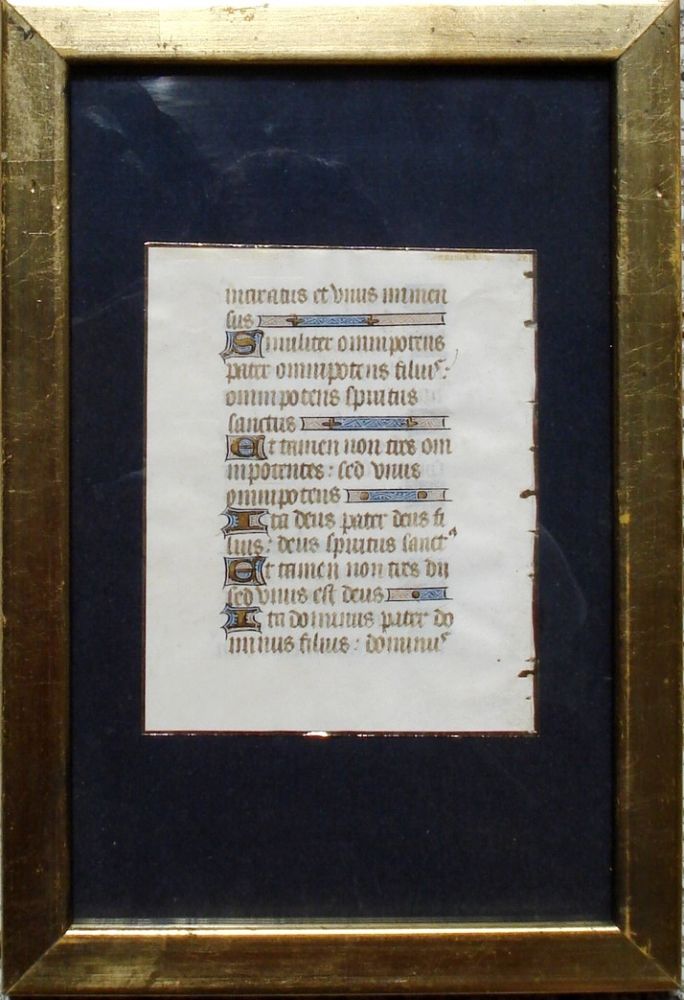 increatus et vnus immen
sus
Similiter omnipotens
pater omnipotens filius:
omnipotens spiritus
sanctus
Et tamen non tres om
nipotentes: sed vnus
omnipotens
Ita deus pater deus fi
lius: deus spiritus sanct9
Et tamen non tres dii
sed vnus est deus
Ita dominus pater do
minus filius: dominus